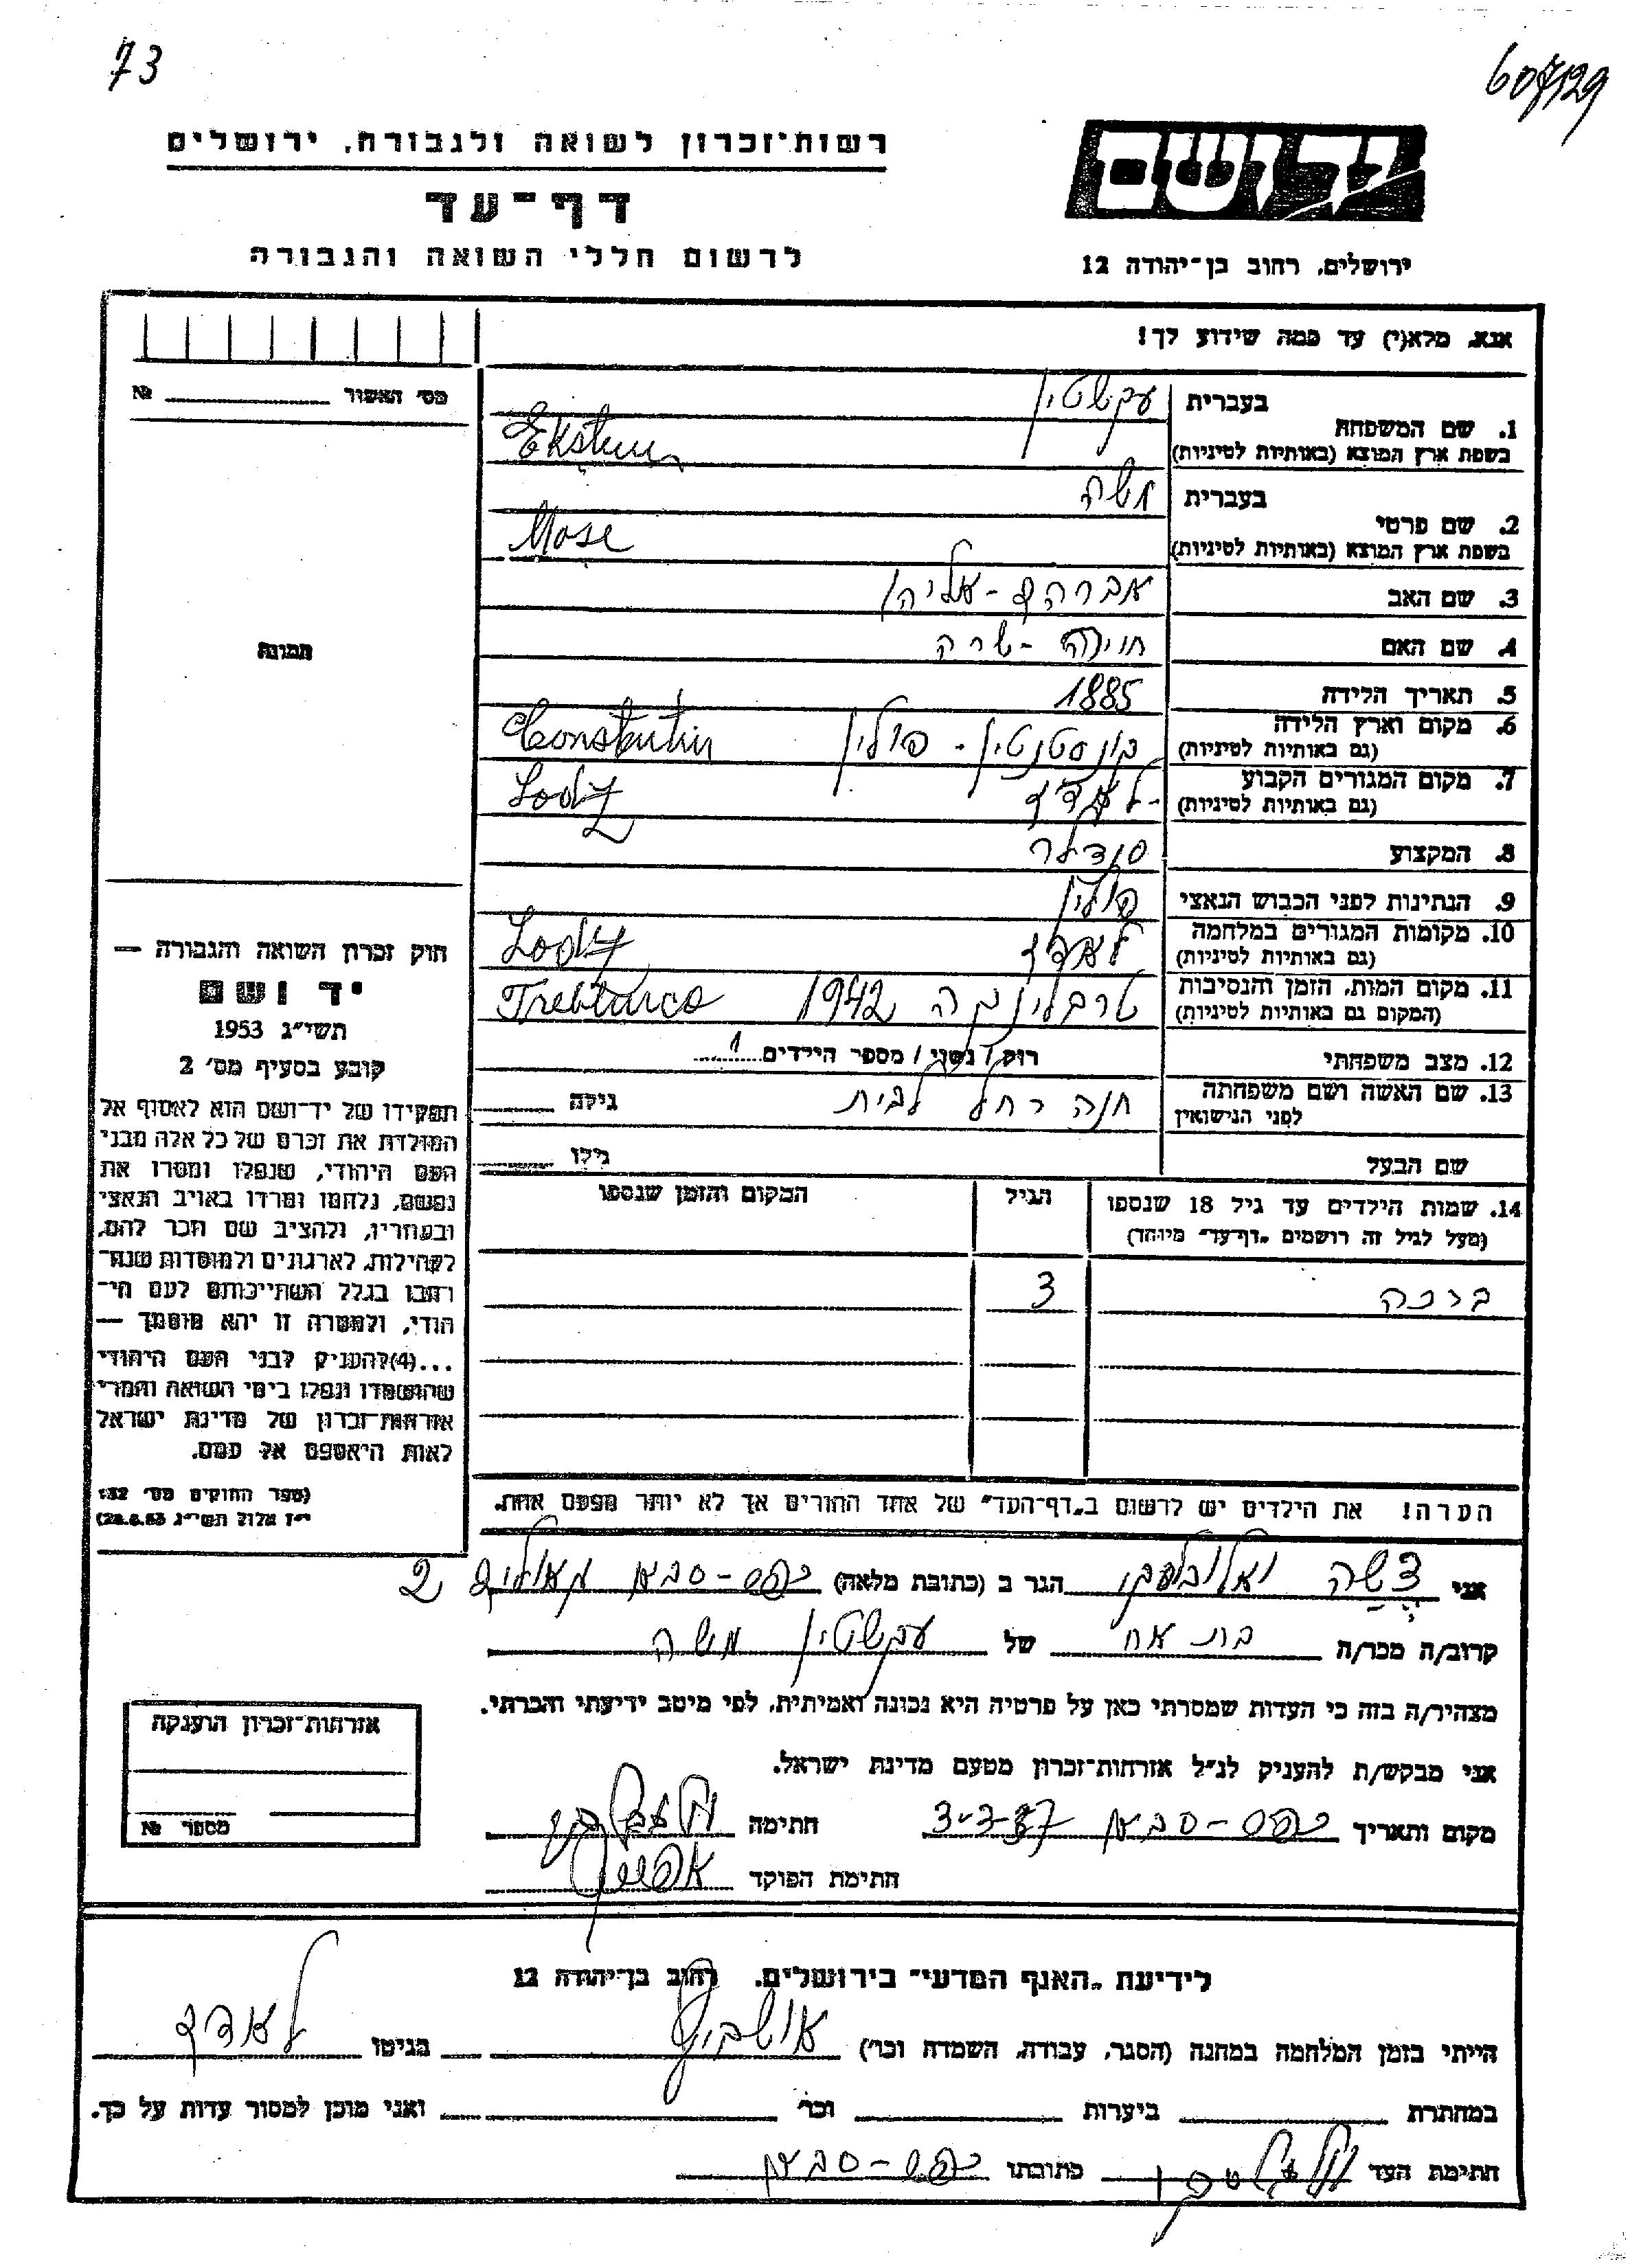 73
607/129
רשות־זכרון לשואה ולגבורה, ירושלים
יד ושם
דף-עד
לרשום חללי השואה והגבורה
ירושלים, רחוב בן-יהודה 12
אנא, מלא(י) עד כמה שידוע לך!
מס׳ האשור № ______
1. שם המשפחה בעברית עקשטין
בשפת ארץ המוצא (באותיות לטיניות) Ekstein
2. שם פרטי בעברית משה
בשפת ארץ המוצא (באותיות לטיניות) Mose
3. שם האב אברהם-אליהו
4. שם האם חוינה-שרה
תמונה
5. תאריך הלידה 1885
6. מקום וארץ הלידה (גם באותיות לטיניות) קונסטנטין - פולין Constantin
7. מקום המגורים הקבוע (גם באותיות לטיניות) לאדז Lody
8. המקצוע סנדלר
9. הנתינות לפני הכבוש הנאצי פולין
10. מקומות המגורים במלחמה (גם באותיות לטיניות) לאדז Lody
11. מקום המות, הזמן והנסיבות (המקום גם באותיות לטיניות) טרבלינקה 1942
12. מצב משפחתי רווק / נשוי / מספר הילדים 1
13. שם האשה ושם משפחתה לפני הנישואין חנה רחל לבית גילה
שם הבעל גילו
14. שמות הילדים עד גיל 18 שנספו
(מעל לגיל זה רושמים "דף-עד" מיוחד)
הגיל
המקום והזמן שנספו
ברכה 3
הערה! את הילדים יש לרשום ב"דף-העד" של אחד ההורים אך לא יותר מפעם אחת.
חוק זכרון השואה והגבורה —
יד ושם
תשי״ג 1953
קובע בסעיף מס׳ 2
תפקידו של יד-ושם הוא לאסוף אל
המולדת את זכרם של כל אלה מבני
העם היהודי, שנפלו ומסרו את
נפשם, נלחמו ומרדו באויב הנאצי
ובעוזריו, ולהציב שם וזכר להם,
לקהילות, לארגונים ולמוסדות שנח־
רבו בגלל השתייכותם לעם הי־
הודי, ולמטרה זו יהא מוסמך —
...(4) להעניק לבני העם היהודי
שהושמדו ונפלו בימי השואה והמרי
אזרחות-זכרון של מדינת ישראל
לאות היאספם אל עמם.
(ספר החוקים מס׳ 132
י״ז אלול תשי״ג 28.8.53)
אני הגר ב (כתובת מלאה) כפר-סבא 2
קרוב/ה מכר/ה בת אח של עקשטין משה
מצהיר/ה בזה כי העדות שמסרתי כאן על פרטיה היא נכונה ואמיתית, לפי מיטב ידיעתי והכרתי.
אני מבקש/ת להעניק לנ״ל אזרחות-זכרון מטעם מדינת ישראל.
מקום ותאריך כפר-סבא חתימה
חתימת הפוקד
אזרחות-זכרון הוענקה
מספר №
לידיעת "האגף המדעי" בירושלים, רחוב בן-יהודה 12
הייתי בזמן המלחמה במחנה (הסגר, עבודה, השמדה וכו׳) אושביץ בגיטו לאדז
במחתרת ביערות וכו׳ ואני מוכן למסור עדות על כך.
חתימת העד כתובתו כפר-סבא